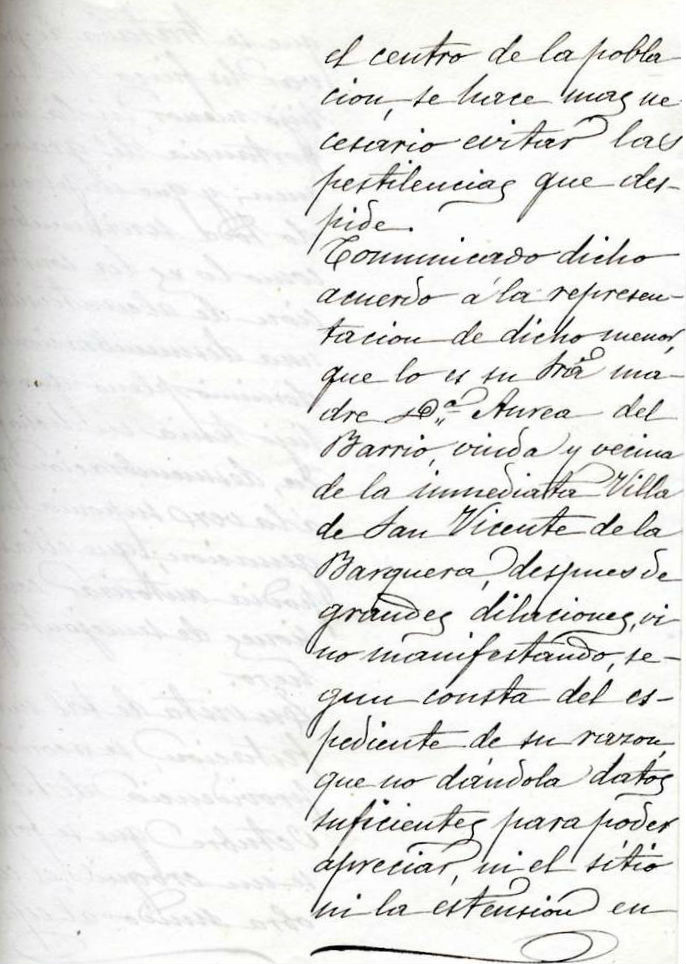 el centro de la pobla-
cion, se hace mas ne
cesario evitar las
pestilencias que des-
pide.
Comunicado dicho
acuerdo á la represen-
tacion de dicho menor,
que lo es su Srª ma-
dre Dª Aurea del
Barrio, viuda y vecina
de la inmediata Villa
de San Vicente de la
Barquera, despues de
grandes dilaciones, vi
no manifestando, se-
gun consta del es-
pediente de su razon,
que no dándola datos
suficientes para poder
apreciar, ni el sitio
ni la estension en